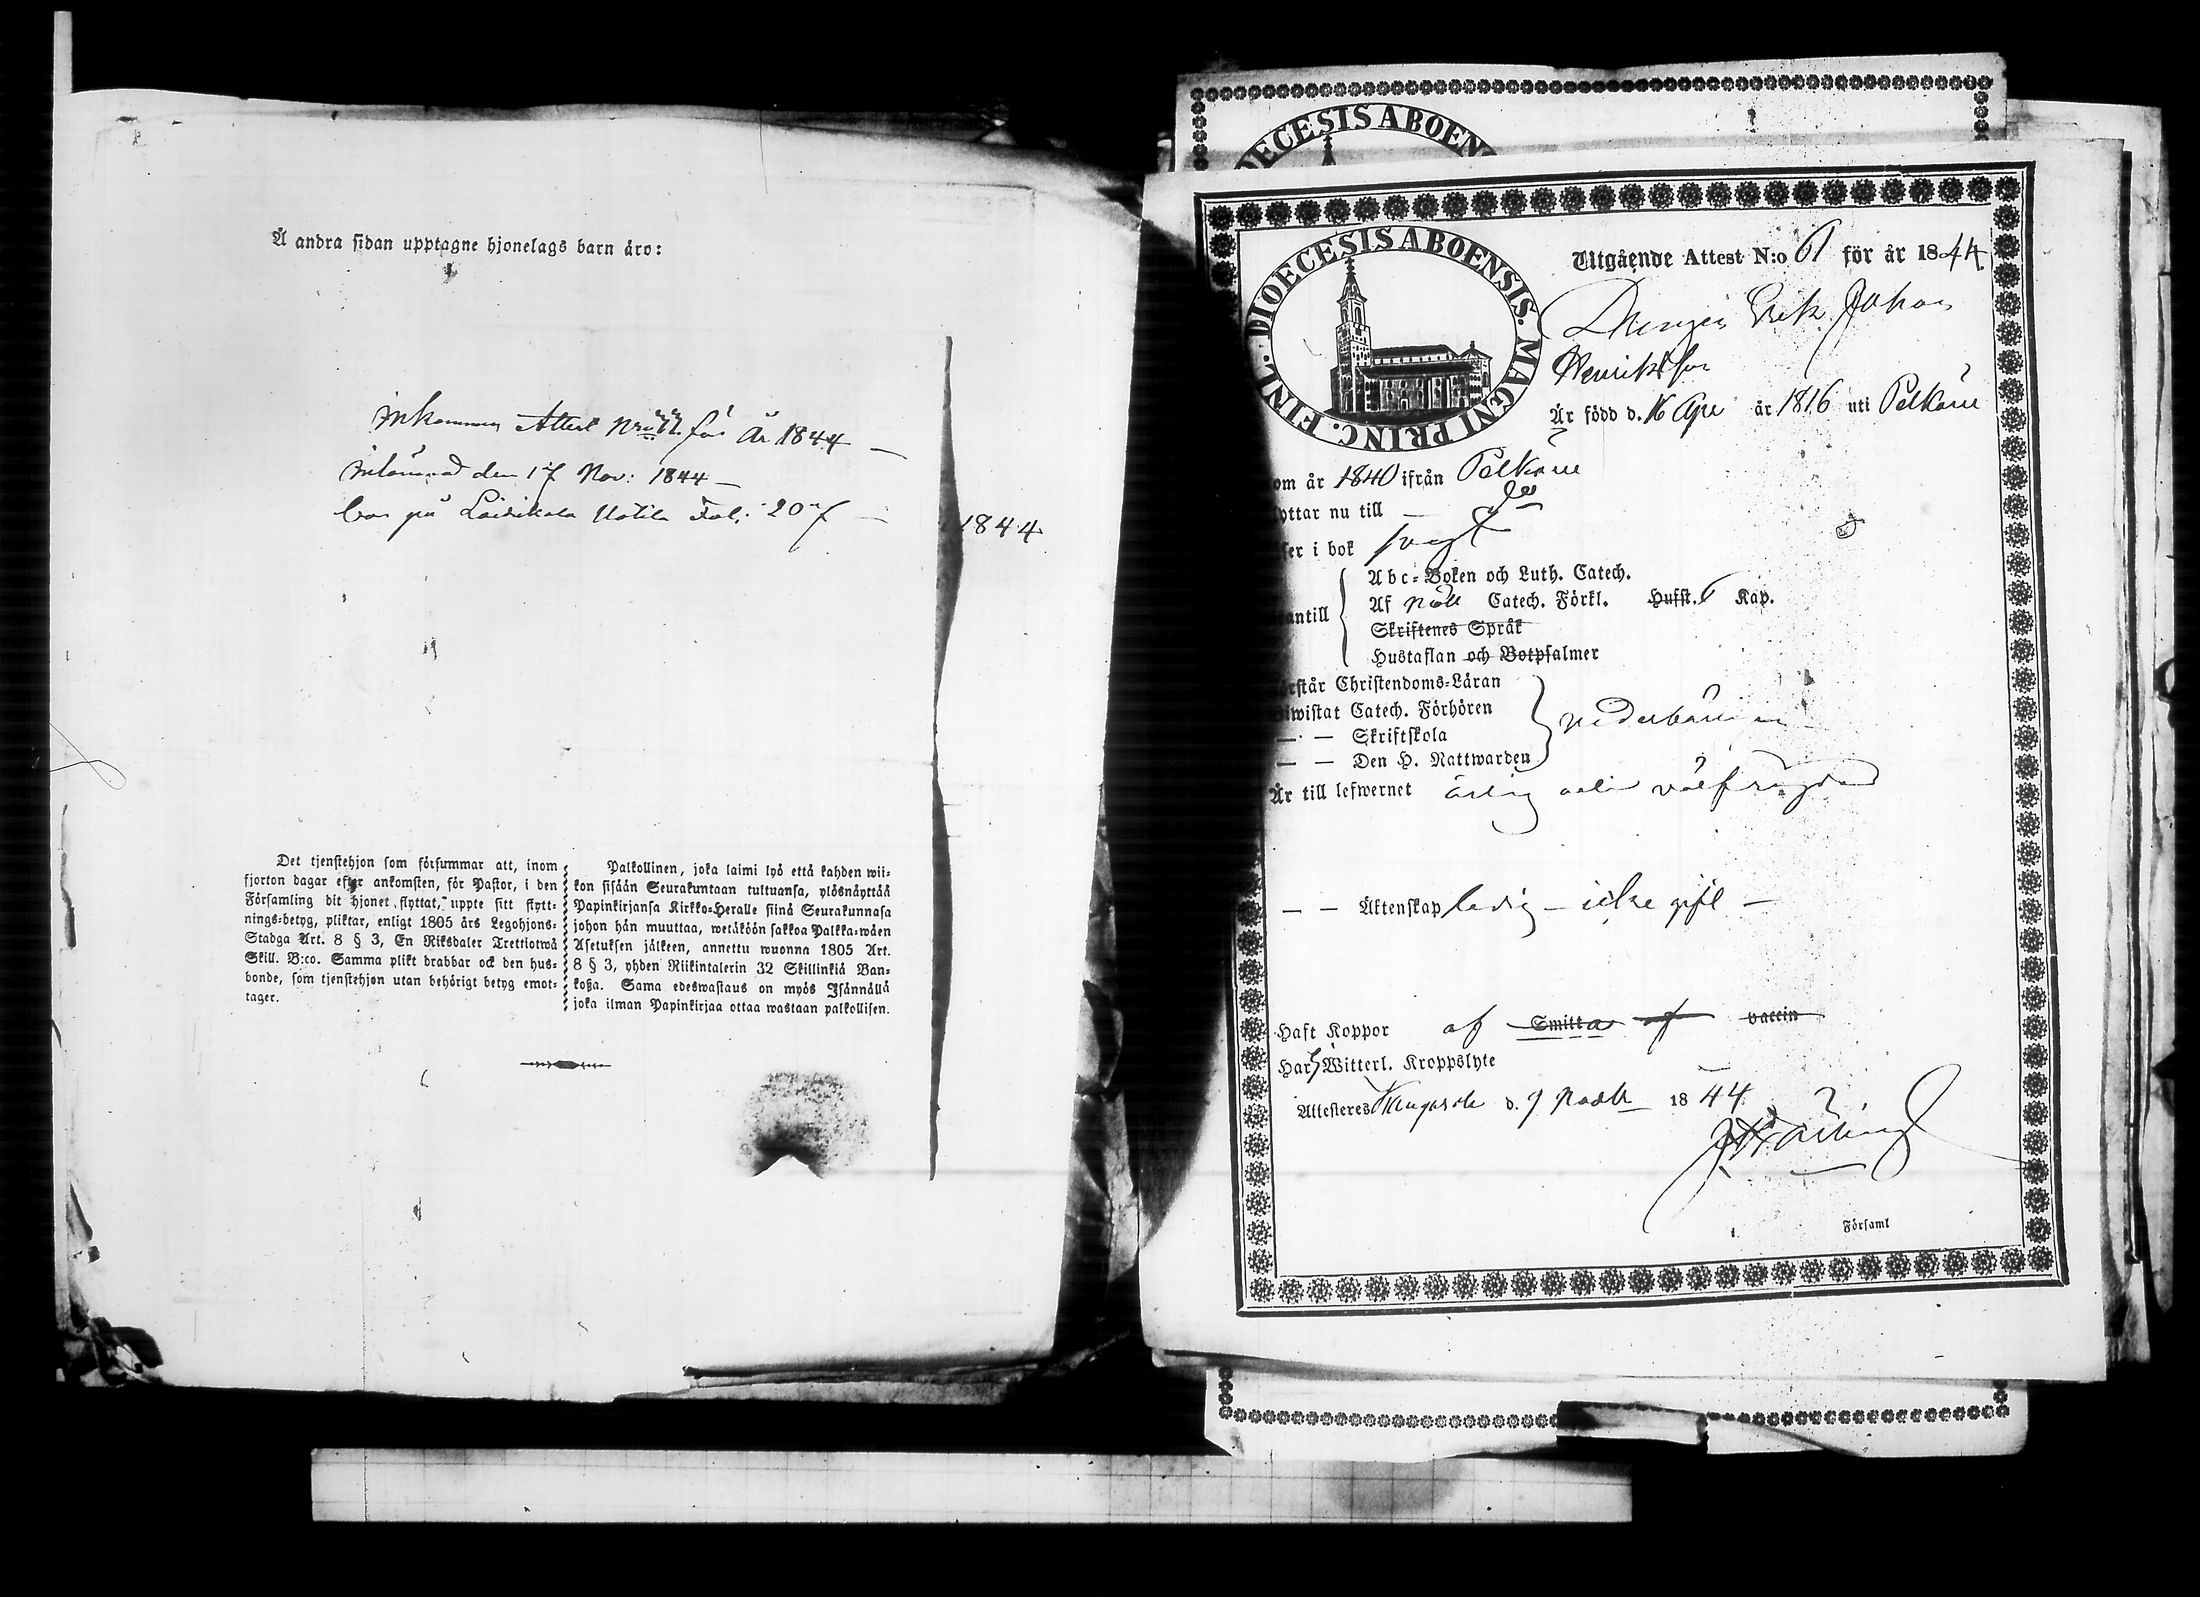 Å andra sidan upptagne hjonelags barn äro:
Inkommen Attest Nro 77. för År 1844
inlämnad den 17 Nov: 1844
bor på Laidikala Uotila Fol. 207
1844
Det tjenstehjon som försummar att, inom
fjorton dagar efter ankomsten, för Pastor, i den
Församling dit hjonet flyttat, uppte sitt flytt-
nings-betyg, pliktar, enligt 1805 års Legohjons-
Stadga Art. 8 § 3, En Riksdaler Trettiotwå
Skill. B:co. Samma plikt drabbar ock den hus-
bonde, som tjenstehjon utan behörigt betyg emot-
tager.
Palkollinen, joka laimi lyö että kahden wii-
kon sisään Seurakuntaan tultuansa, ylösnäyttää
Papinkirjansa Kirkko-Heralle siinä Seurakunnasa
johon hän muuttaa, wetäköön sakkoa Palkka-wäen
Asetuksen jälkeen, annettu wuonna 1805 Art.
8 § 3, yhden Riikintalerin 32 Skillinkiä Ban-
koßa. Sama edeswastaus on myös Isännällä
joka ilman Papinkirjaa ottaa wastaan palkollisen.
DIOECESIS ABOENS
FINL. DIOECESIS ABOENSIS. MAGNI PRINC.
Utgående Attest N:o för år 1844.
Drengen Erik Johan
Henriksson
Är född d. 16 Apr år 1816 uti Pelkäne
om år 1840 ifrån Pelkäne
yttar nu till
ser i bok svagt
Abc-Boken och Luth. Catech.
antill Af Catech. Förkl. Hufst. 6 Kap.
Skriftenes Språk
Hustaflan och Botpsalmer
örstår Christendoms-Läran
iwistat Catech. Förhören
— — Skriftskola
— — Den H. Nattwarden
Är till lefwernet ärlig och välfrägdad
— — Äktenskap ledig – icke gift –
Haft Koppor af Smitta af vaccin
Har Witterl. Kroppslyte
Attesteres Kangasala d. 9 1844
Församl